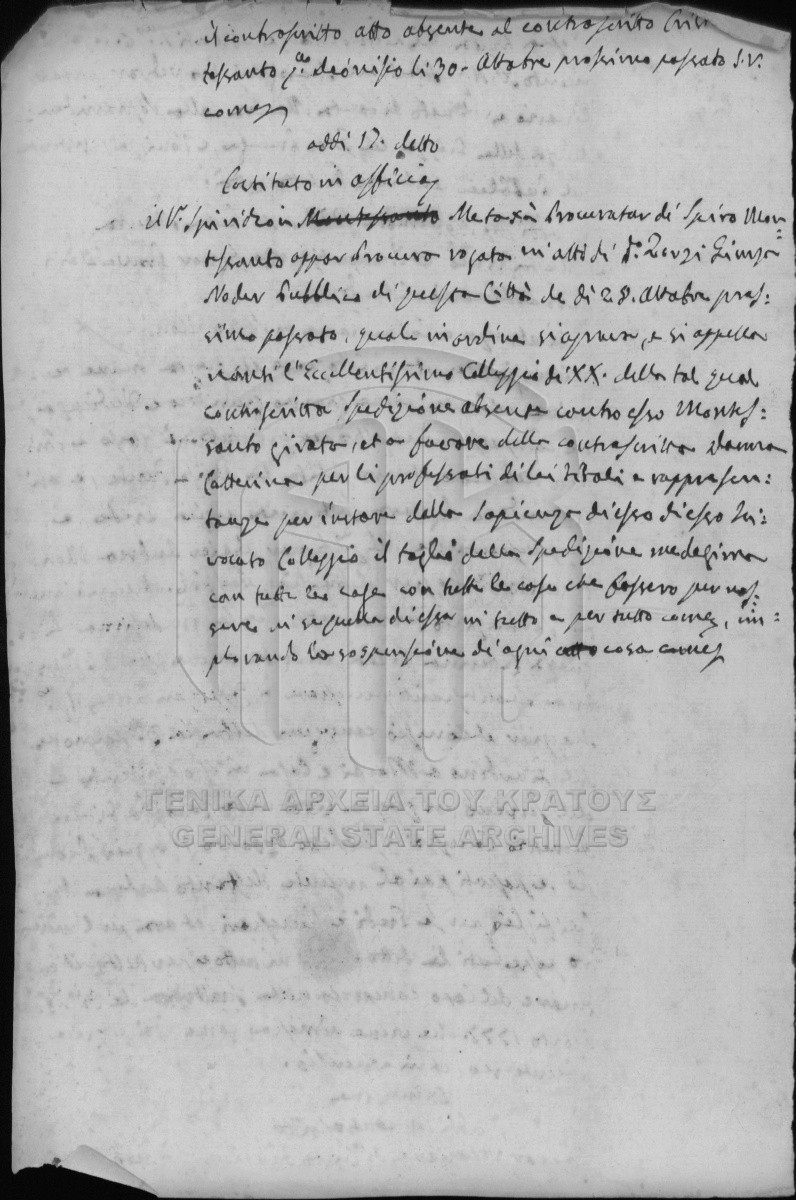 il controscritto atto absente al controscritto Cris
tofsanto q.m Dionisio li 30. Ottobre prossimo passato S.V.
come
addi 17. detto
Costituto in officio
il V.o Spiridion Montesanto Metaxà Procurator di Spiro Mon=
tesanto appar Procura rogata in atti di D.o Zorzi
Noder Pubblico di questa Città de di 28. Ottobre pros=
simo passato, quale in ordine si aprava, e si appella
inansi l'Eccellentissimo Colleggio di XX. della tal qual
controscritta Spedizione absente contro esso Montes=
santo girata, et a favore della controscritta Donna
Catterina per li professati di lei titoli e rappresen=
tanze per instar della Sapienza di esso di esso In=
vocato Colleggio il taglio della Spedizione medesima
con tutte le cose con tutte le cose che fossero per nas=
sere in sequella di essa in tutto e per tutto come, im=
plorando la sospensione di ogni atto cosa come
ΓΕΝΙΚΑ ΑΡΧΕΙΑ ΤΟΥ ΚΡΑΤΟΥΣ
GENERAL STATE ARCHIVES